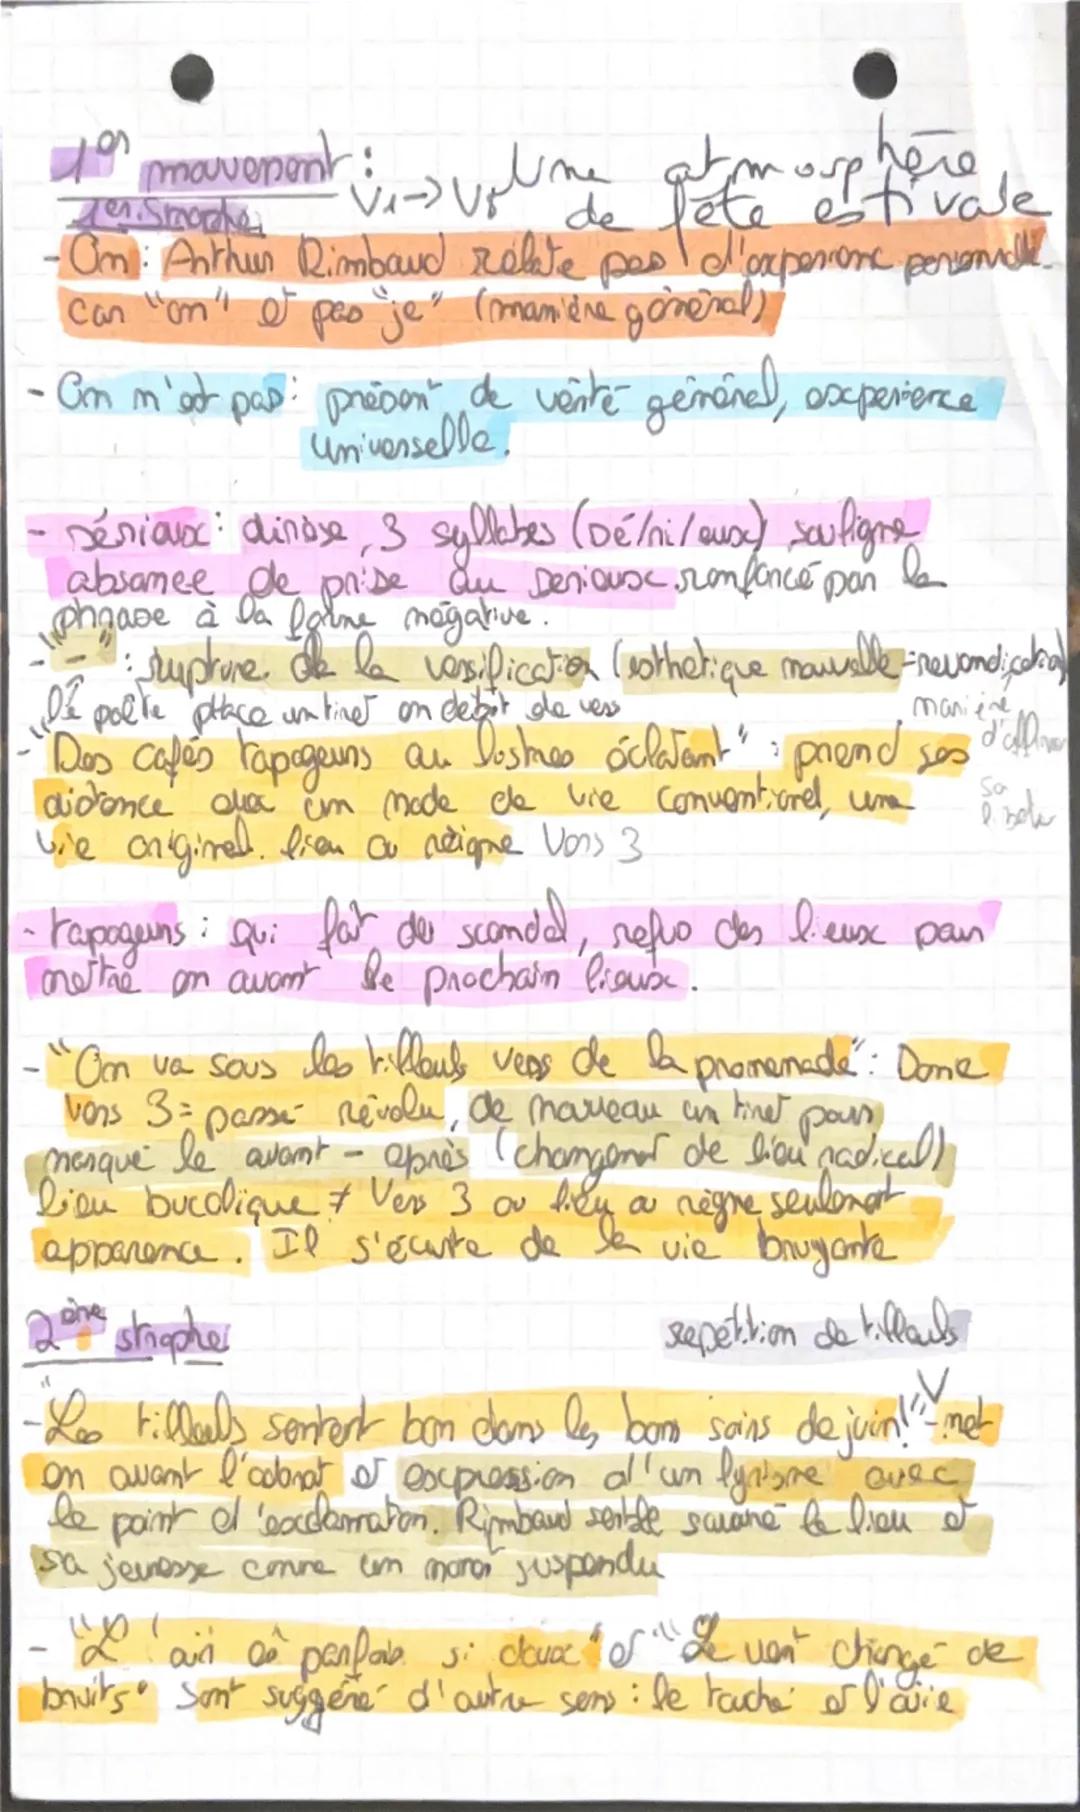 1er mouvement : V1→V8 Une atmosphère
de fête estivale
1er. Strophe
- On : Arthur Rimbaud relate pas d'experience personnelle
car "on" et pas "je" (manière général)
- On n'est pas : présent de vérité général, experience
universelle.
- Sériaux : dièrèse, 3 syllabes (Sé/ri/eux) souligne
absence de prise au serieux renforcé par la
phrase à la forme négative.
- "–" : rupture de la versification (esthetique nouvelle = revendication
le poète place un tiret en debut de vers
manière
d'affirmer
sa
liberté
- "Des cafés tapageurs au lustres éclatant" : prend ses
distance avec un mode de vie conventionel, une
vie originel. lieu ou règne Vers 3
- tapageurs : qui fait des scandal, refus des lieux pour
mettre en avant le prochain lieux.
- "On va sous les tilleuls vers de la promenade" : Donc
Vers 3 = passé révolu, de nouveau un tiret pour
marqué le avant - après (changement de lieu radical)
lieu bucolique ≠ Vers 3 ou lieu ou règne seulement
apparence. Il s'écarte de la vie bruyante
2ème strophe
repétition de tilleuls
- "Les tilleuls sentent bon dans les bons soirs de juin!" - met
en avant l'odorat et expression d'un lyrisme avec
le point d'exclamation. Rimbaud semble savouré le lieu et
sa jeunesse comme un moment suspendu
- "L'air est parfois si doux" et "Le vent chargé de
bruits" sont suggéré d'autre sens : le touché et l'ouie